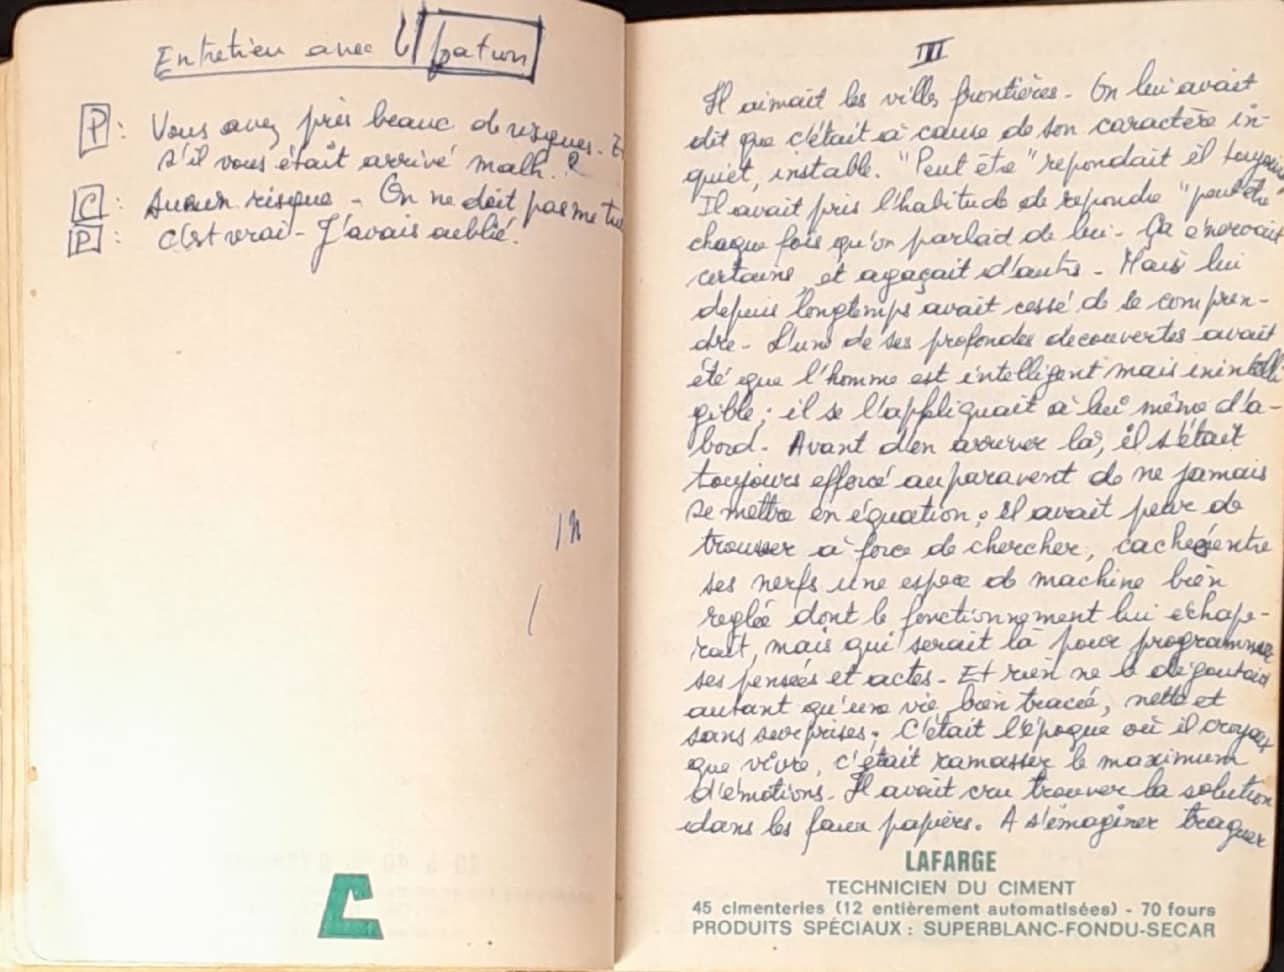 Entretien avec patron
P : Vous avez pris beauc. de risques - Et
s'il vous était arrivé malh. ?
C : Aucun risque - On ne doit pas me tu
P : C'est vrai - J'avais oublié.
III
Il aimait les villes frontières - On lui avait
dit que c'était à cause de son caractère in-
quiet, instable. "Peut être" repondait il toujours
Il avait pris l'habitude de repondre "peut être
chaque fois qu'on parlait de lui - Ça énervait
certains, et agaçait d'autres - Mais lui
depuis longtemps avait cessé de se compren-
dre - L'une de ses profondes decouvertes avait
été que l'homme est intelligent mais inintelli
gible ; il se l'appliquait à lui même d'a-
bord - Avant d'en arriver là, il s'était
toujours efforcé auparavent de ne jamais
se mettre en équation ; il avait peur de
trouver à force de chercher, cachée entre
ses nerfs une espece de machine bien
reglée dont le fonctionnement lui echape-
rait, mais qui serait là pour programmer
ses pensées et actes - Et rien ne le dégoutait
autant qu'une vie bien tracée, nette et
sans surprises ; C'était l'époque où il croyait
que vivre, c'était ramasser le maximum
d'émotions - Il avait cru trouver la solution
dans les faux papiers. A s'imaginer traquer
LAFARGE
TECHNICIEN DU CIMENT
45 cimenteries (12 entièrement automatisées) - 70 fours
PRODUITS SPÉCIAUX : SUPERBLANC-FONDU-SECAR